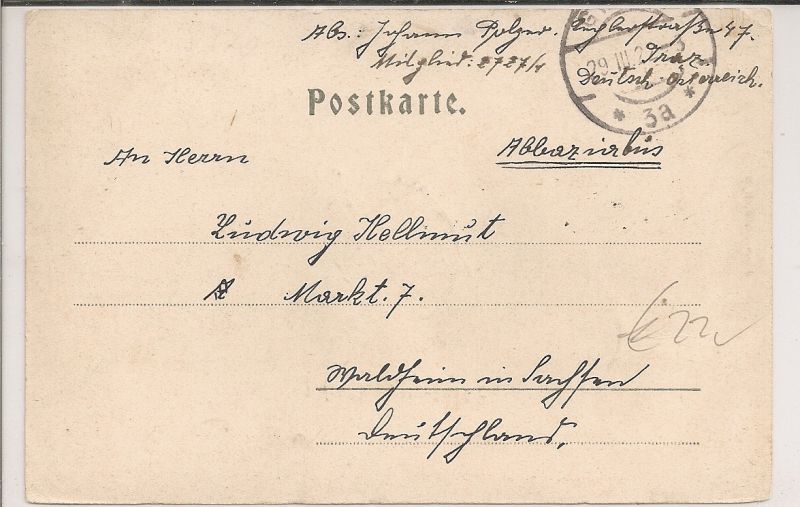 Abs.: Johann Polzer. 47.
Mitglied: 2727/4 Graz.
29 III 2
Deutsch-Österreich.
Postkarte.
* 3a *
An Herrn
Ludwig Hellmut
Markt. 7.
Waldheim in Sachsen
Deutschland.